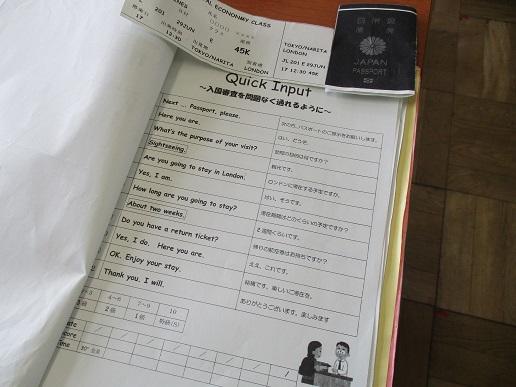 AL ECONONMY CLASS
201 29JUN E 45K
TOKYO/NARITA LONDON
17 12:30
TOKYO/NARITA
LONDON
JL 201 E 29JUN
17 12:30 45K
日本国旅券
JAPAN
PASSPORT
Quick Input
～入国審査を問題なく通れるように～
Next ... Passport, please.
次の方、パスポートのご提示をお願いします。
Here you are.
はい、どうぞ。
What's the purpose of your visit?
訪問の目的は何ですか？
Sightseeing.
観光です。
Are you going to stay in London.
ロンドンに滞在する予定ですか。
Yes, I am.
はい、そうです。
How long are you going to stay?
滞在期間はどのくらいの予定ですか？
About two weeks.
２週間くらいです。
Do you have a return ticket?
帰りの航空券はお持ちですか？
Yes, I do. Here you are.
ええ、これです。
OK. Enjoy your stay.
結構です。楽しいご滞在を。
Thank you. I will.
ありがとうございます。楽しみます
4~6 7~9 10
2級 1級 特級(S)